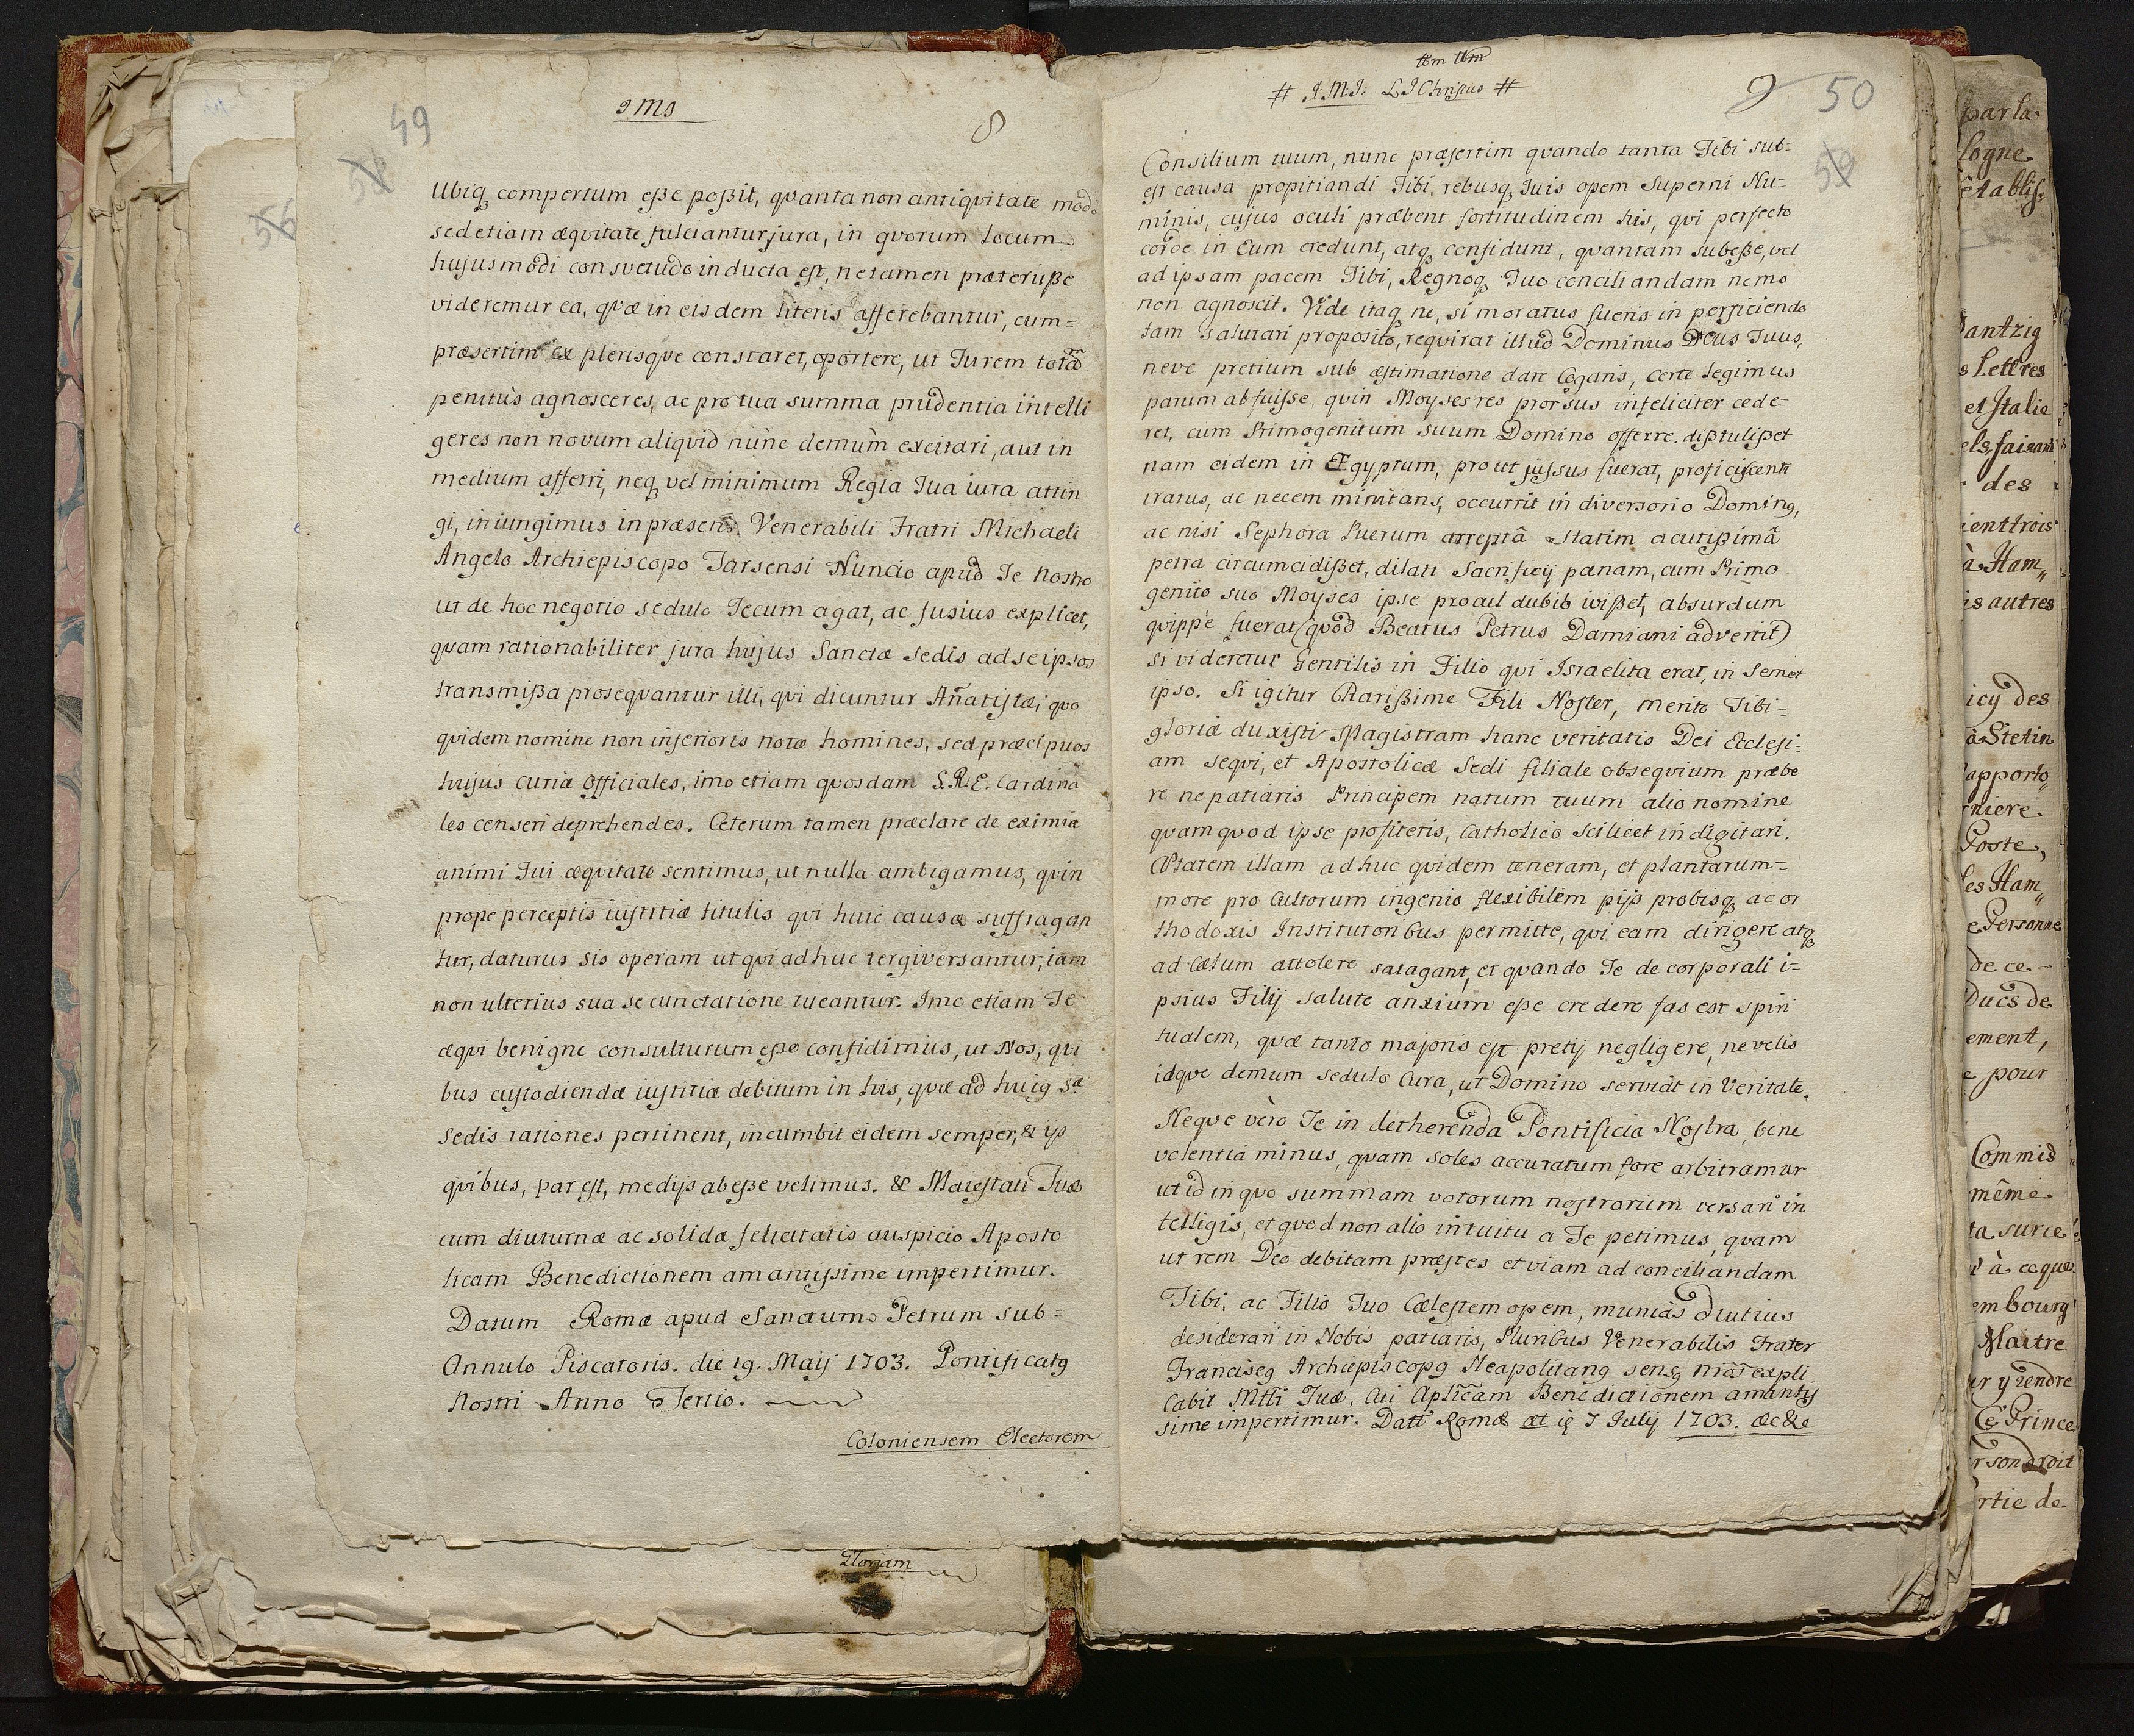 49
58
56
9 Mg
8
Ubiq, compertum eße poßit, qvanta non antiqvitate modo
sed etiam æqvitate fulciantur jura, in qvorum locum
hujusmodi consvetudo inducta est, ne tamen præterijße
videremur ea, qvæ in eisdem literis afferebantur, cum=
præsertim ex plerisqve constaret, oportere, ut Jurem totam
penitùs agnosceres, ac pro tua summa prudentia intelli
geres non novum aliqvid nunc demùm excitari, aut in
medium afferri, neq, vel minimum Regia Tua iura attin
gi, iniungimus in præsens Venerabili Fratri Michaeli
Angelo Archiepiscopo Tarsensi Nuncio apud Te Nostro
ut de hoc negotio sedulo Tecum agat, ac fusius explicet,
qvam rationabiliter jura hujus Sanctæ Sedis ad se ipsos
transmißa proseqvantur illi, qui dicuntur Añatistæ; qvo
qvidem nomine non inferioris notæ homines, sed præcipuos
hujus Curiæ Officiales, imo etiam qvosdam S.R.E. Cardina
les censeri deprehendes. Ceterum tamen præclare de eximia
animi Tui æqvitate sentimus, ut nulla ambigamus, qvin
prope perceptis iustitiæ titulis qvi huic causæ suffragan
tur, daturus sis operam ut qvi adhuc tergiversantur, iam
non ulterius sua se cunctatione tueantur. Imo etiam Te
æqvi benigne consulturum eße confidimus, ut Nos, qvi
bus custodiendæ iustitiæ debitum in his, quæ ad huig Sæ
Sedis rationes pertinent, incumbit eidem semper, & ijs
qvibus, par est, medijs abeße velimus. & Maiestati Tuæ
cum diuturnæ ac solidæ felicitatis auspicio Aposto
licam Benedictionem amantissime impertimur.
Datum Romæ apud Sanctum Petrum sub=
Annulo Piscatoris. die 19. Maij 1703. Pontificatg
Nostri Anno Tertio.
Coloniensem Electorem
Gloriam
ttm ttm
# J.M.J: L J Christus #
9 50
59
Consilium tuum, nunc præsertim qvando tanta Tibi sub=
est causa propitiandi Tibi, rebusq, Tuis opem Superni Nu=
minis, cujus oculi præbent fortitudinem his, qvi perfecto
corde in Eum credunt, atq, confidunt, qvantam subeße, vel
ad ipsam pacem Tibi, Regnoq, Tuo conciliandam nemo
non agnoscit. Vide itaq, ne, si moratus fueris in perficiendo
tam salutari proposito, reqvirat illud Dominus Deus Tuus,
neve pretium sub æstimatione dare Cogaris, Certe legimus
parum abfuisse, qvin Moyses res prorsus infeliciter cede=
ret, cum Primogenitum suum Domino offerre distulißet
nam eidem in Ægyptum, prout jussus fuerat, proficiscenti
iratus, ac necem minitans, occurrit in diversorio Doming,
ac nisi Sephora Puerum arreptâ statim acutißimâ
petra circumcidißet, dilati Sacrificij pænam, cum Primo
genito suo Moyses ipse procul dubio ivißet, absurdum
qvippè fuerat (qvod Beatus Petrus Damiani advertit)
si videretur Gentilis in Filio qvi Israelita erat, in Semet
ipso. Si igitur Charißime Fili Noster, merito Tibi=
gloriæ duxisti Magistram hanc veritatis Dei Ecclesi=
am seqvi, et Apostolicæ Sedi filiale obseqvium præbe
re ne patiaris Principem natum tuum alio nomine
qvam qvod ipse profiteris, Catholico scilicet indigitari.
Ætatem illam adhuc qvidem teneram, et plantarum=
more pro Cultorum ingenio flexibilem pijs probisq, ac or
thodoxis Institutoribus permitte, qvi eam dirigere atq,
ad Cælum attolere satagant, et qvando Te de corporali i=
psius Filij salute anxium eße credere fas est spiri
tualem, qvæ tanto majoris est pretij negligere, ne velis
idqve demum sedulo Cura, ut Domino serviat in Veritate.
Neqve vèro Te in detherenda Pontificia Nostra, bene
volentia minus, qvam soles accuratum fore arbitramur
ut id in qvo summam votorum nostrorum versari in
telligis, et qvod non alio intuitu a Te petimus, qvam
ut rem Deo debitam præstes et viam ad conciliandam
Tibi, ac Filio Tuo Cælestem opem, munias diutius
desiderari in Nobis patiaris, Pluribus Venerabilis Frater
Francisçg Archiepiscopg Neapolitang sensg nrãs expli
Cabit Mtti Tuæ, Cui Aplicam Benedictionem amantis
sime impertimur. Datt Romæ et ig 7 Julij 1703. &c&c
par la
logne
établis=
Dantzig
s Lettres
et Italie
els, faisant
des
ient trois
à Ham,,
is autres
icy des
à Stetin
apporto,,
niere
Poste,
les Ham,,
e Personne
de ce
Ducs de
ement,
e pour
Commis
même
ta surce
à ce que
embourg
Maitre
er y rendre
Ce Prince
r son droit
rtie de